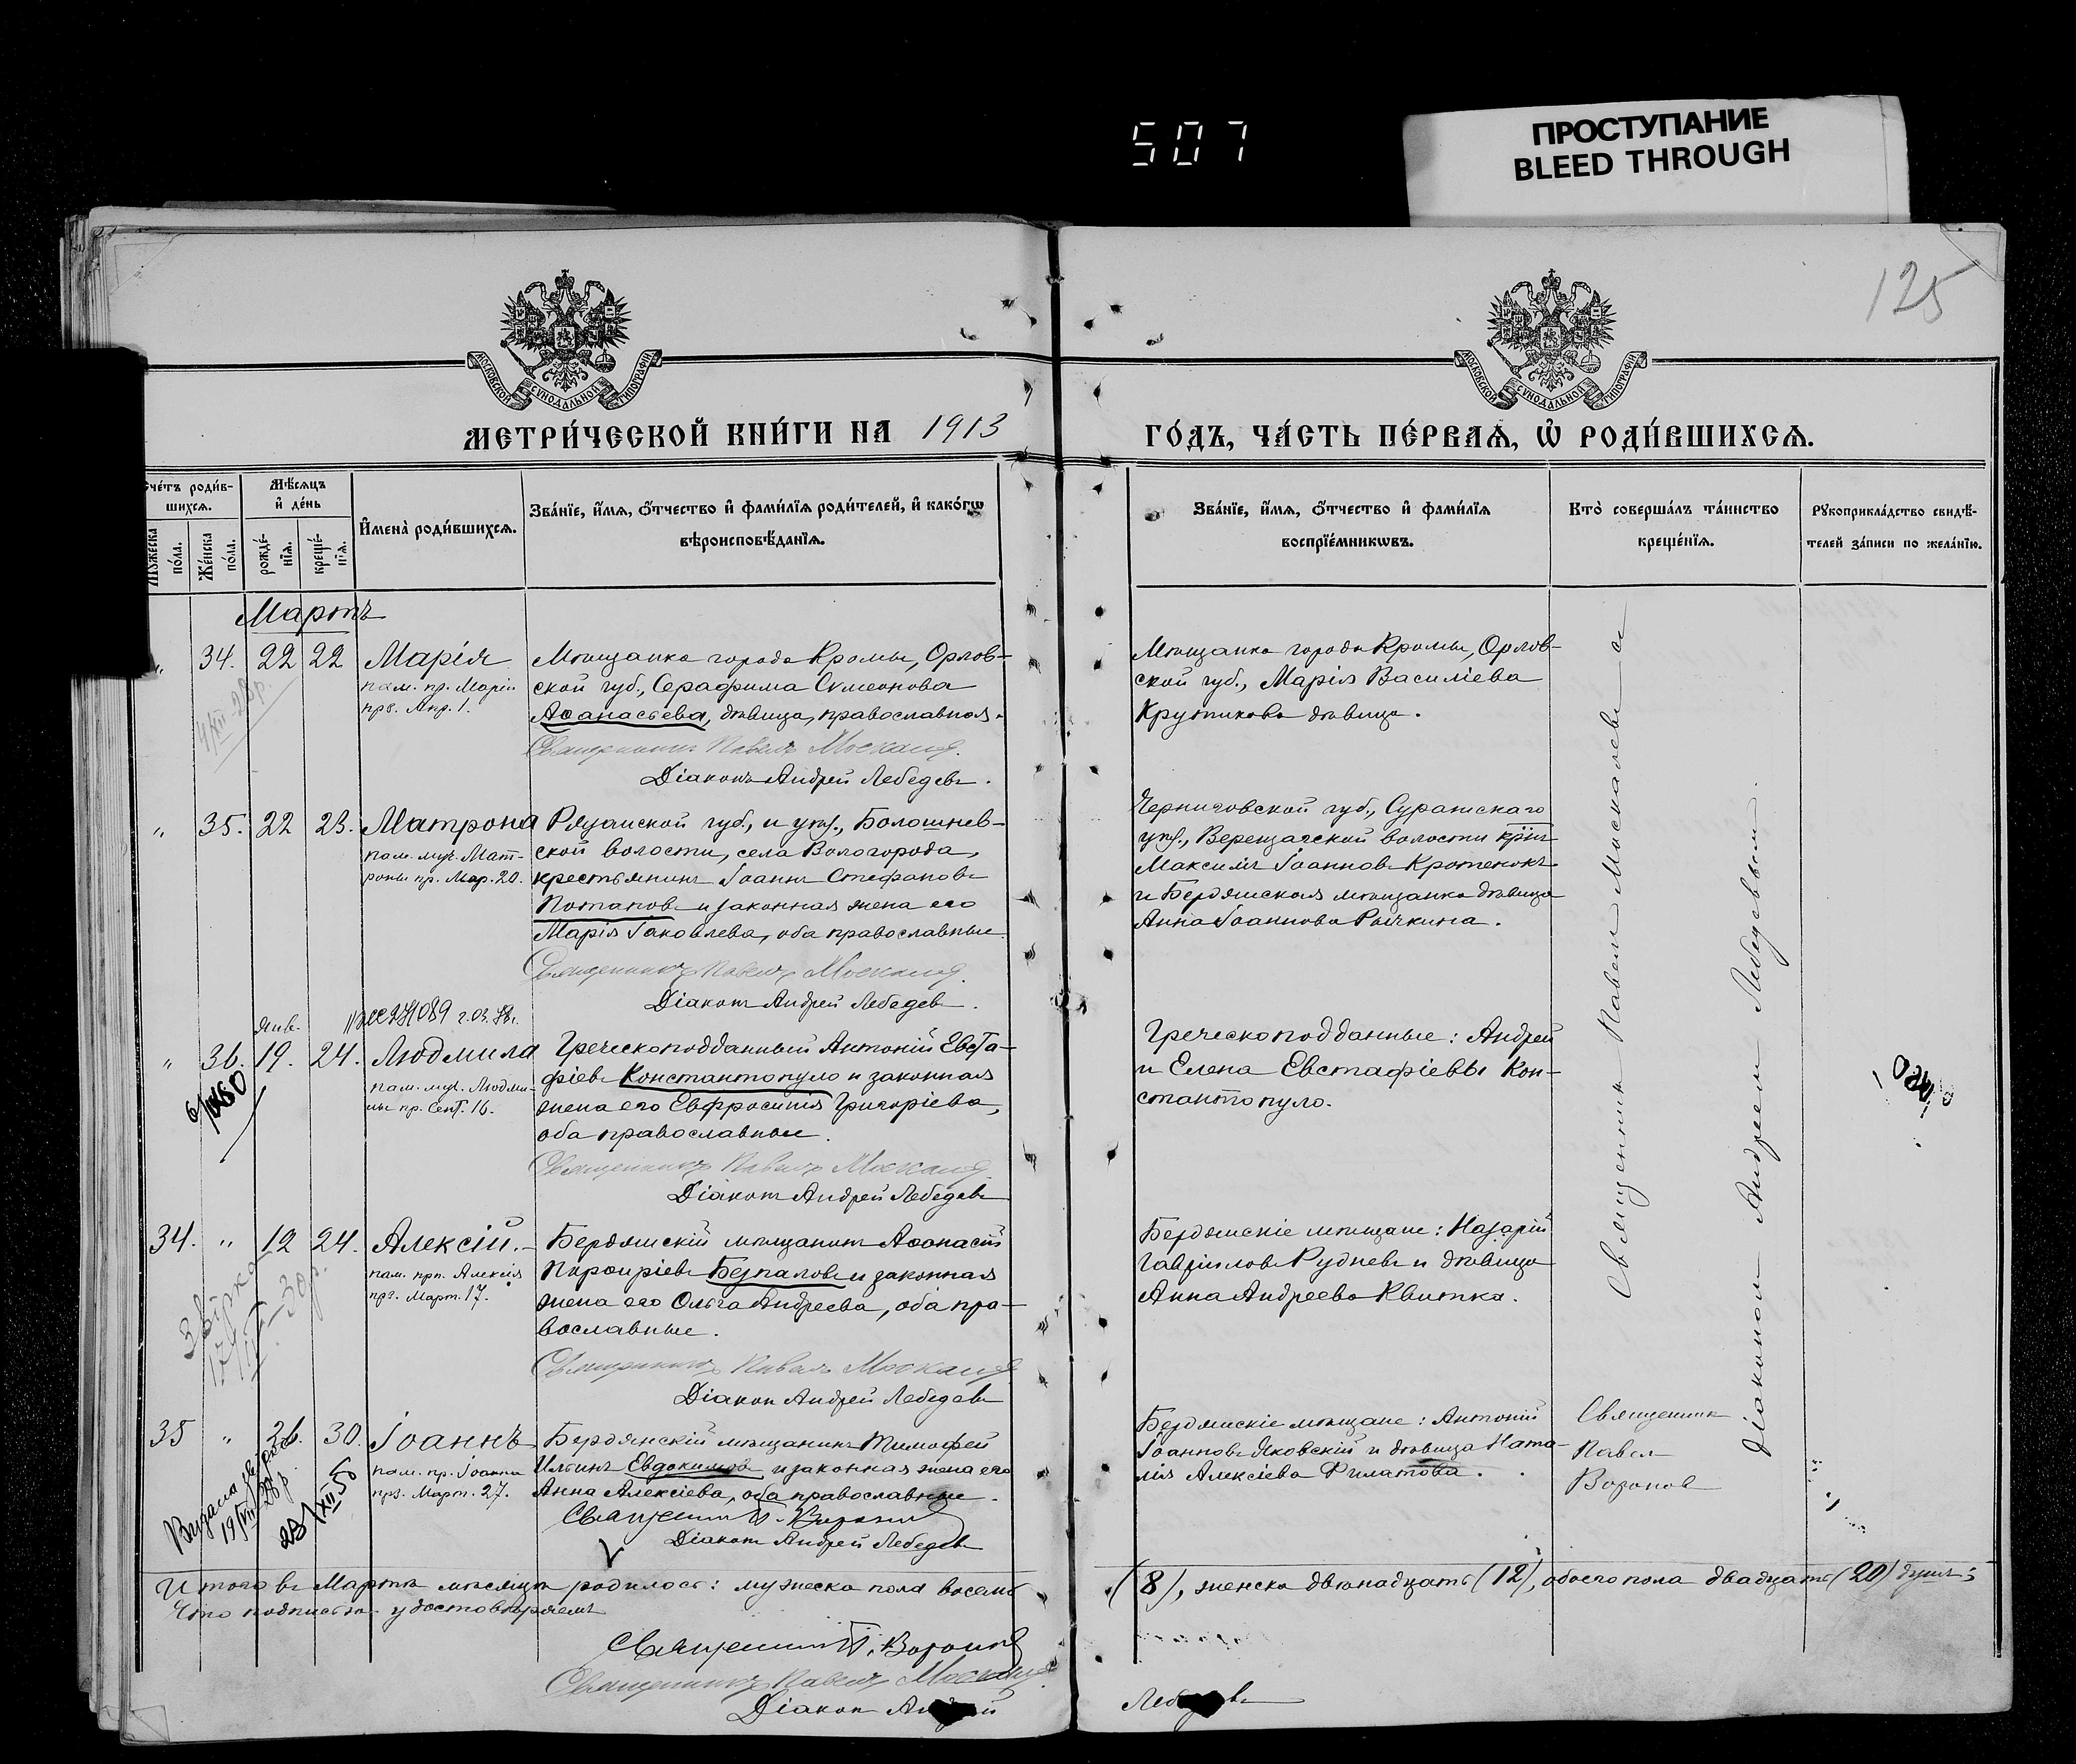 507
ПРОСТУПАНИЕ
BLEED THROUGH
125
МОСКОВСКОЙ СѴНОДАЛЬНОЙ ТИПОГРАФІИ
МОСКОВСКОЙ СѴНОДАЛЬНОЙ ТИПОГРАФІИ
МЕТРИ́ЧЕСКОЙ КНИ́ГИ НА 1913
ГО́ДЪ, ЧА́СТЬ ПЕ́РВАѦ, Ѡ҆ РОДИ́ВШИХСѦ.
Сче́тъ роди́в-
шихсѧ.
Мꙋ́жеска по́ла.
Же́нска по́ла.
Мѣ́сѧцъ
и҆ де́нь
рожде́-
нїѧ.
креще́-
нїѧ.
И҆мена̀ роди́вшихсѧ.
Зва́нїе, и҆́мѧ, ѻ҆́тчество и҆ фами́лїѧ роди́телей, и҆ како́гѡ
вѣроисповѣ́данїѧ.
Зва́нїе, и҆́мѧ, ѻ҆́тчество и҆ фами́лїѧ
воспрїе́мникѡвъ.
Кто̀ соверша́лъ та́инство
креще́нїѧ.
Рꙋкоприкла́дство свидѣ́-
телей за́писи по жела́нїю.
Мартъ
" 34. 22 22 Марія
пам. пр. Маріи
прз. Апр. 1.
Мѣщанка города Кромы, Орлов-
ской губ., Серафима Симеонова
Аѳанасьева, дѣвица, православная.
Священникъ Павелъ Москалев
Діаконъ Андрей Лебедевъ.
Мѣщанка города Кромы, Орлов-
ской губ., Марія Василіева
Крутикова дѣвица.
" 35. 22 23. Матрона
пам. муч. Мат-
роны пр. Мар. 20.
Рязанской губ., и уѣз., Болошнев-
ской волости, села Вологорода,
крестьянинъ Іоаннъ Стефановъ
Потаповъ и законная жена его
Марія Іаковлева, оба православные.
Священникъ Павелъ Москалев
Діаконъ Андрей Лебедевъ.
Черниговской губ., Суражскаго
уѣз., Верещагской волости крнъ
Максимъ Іоанновъ Кротенокъ
и Бердянская мѣщанка дѣвица
Анна Іоаннова Рычкина.
Янв.
" 36. 19. 24. Людмила
пам. муч. Людми-
лы пр. Сент. 16.
Греческоподданный Антоній Евста-
фіевъ Константопуло и законная
жена его Евфросинія Григоріева,
оба православные.
Священникъ Павелъ Москалев
Діаконъ Андрей Лебедевъ
Греческоподданные: Андрей
и Елена Евстафіевы Кон-
стантопуло.
34. " 12 24. Алексій.
пам. прп. Алексія
прз. Март. 17.
Бердянскій мѣщанинъ Аѳанасій
Порфиріевъ Безпаловъ и законная
жена его Ольга Андреева, оба пра-
вославные.
Священникъ Павелъ Москалев
Діаконъ Андрей Лебедевъ
Бердянскіе мѣщане: Назарій
Гавріиловъ Рудневъ и дѣвица
Анна Андреева Квитка.
35 " 26. 30. Іоаннъ
пам. пр. Іоанна
прз. Март. 27.
Бердянскій мѣщанинъ Тимофей
Ильинъ Евдокимовъ и законная жена его
Анна Алексіева, оба православные.
Священникъ П. Воронов
Діаконъ Андрей Лебедевъ
Бердянскіе мѣщане: Антоній
Іоанновъ Яковскій и дѣвица Ната-
лія Алексіева Филатова.
Священникъ
Павелъ
Вороновъ
Священникъ Павелъ Москалевъ съ
діакономъ Андреемъ Лебедевымъ.
Итого въ Мартѣ мѣсяцѣ родилось: мужеска пола восемь
(8), женска двѣнадцать (12), обоего пола двадцать (20) душъ;
Что подписью удостовѣряемъ
Священникъ П. Воронов
Священникъ Павелъ Москалев
Діаконъ Андрей
Лебедевъ